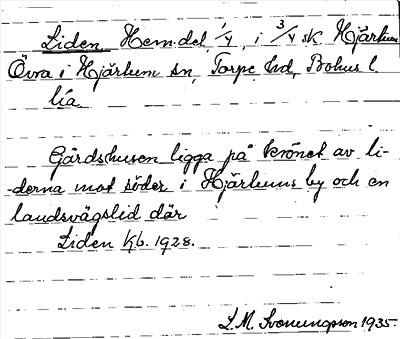 Liden, Hem.del 1/4, i 3/4 sk. Hjärtum
Övra i Hjärtum sn, Torpe hd, Bohus l.
lía
Gårdshusen ligga på krönet av li-
-derna mot söder i Hjärtums by och en
landsvägslid där
Liden Kb. 1928.
L.M. Svenungsson 1935.